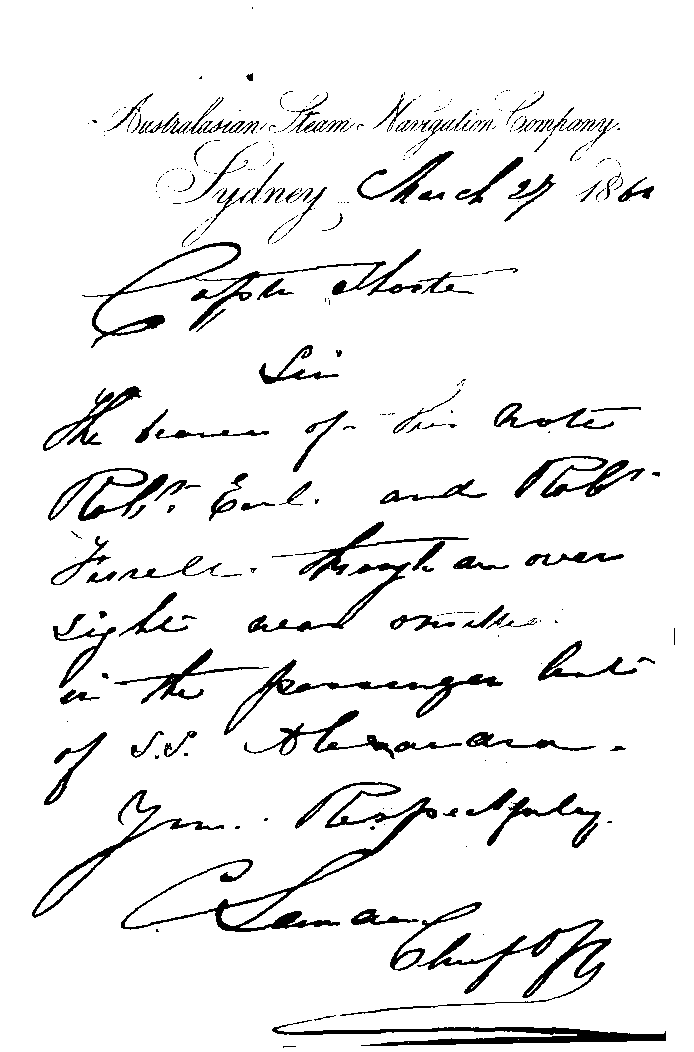 Australasian Steam Navigation Company.
Sydney, March 27 186
Captn
Sir
The bearer of this note
Robt. Earl. and Robt.
Farrell. through an over
sight was omitted
in the passenger list
of S.S. Alexandra.
Yrs. Respectfully,
C Seaman
Chief Off